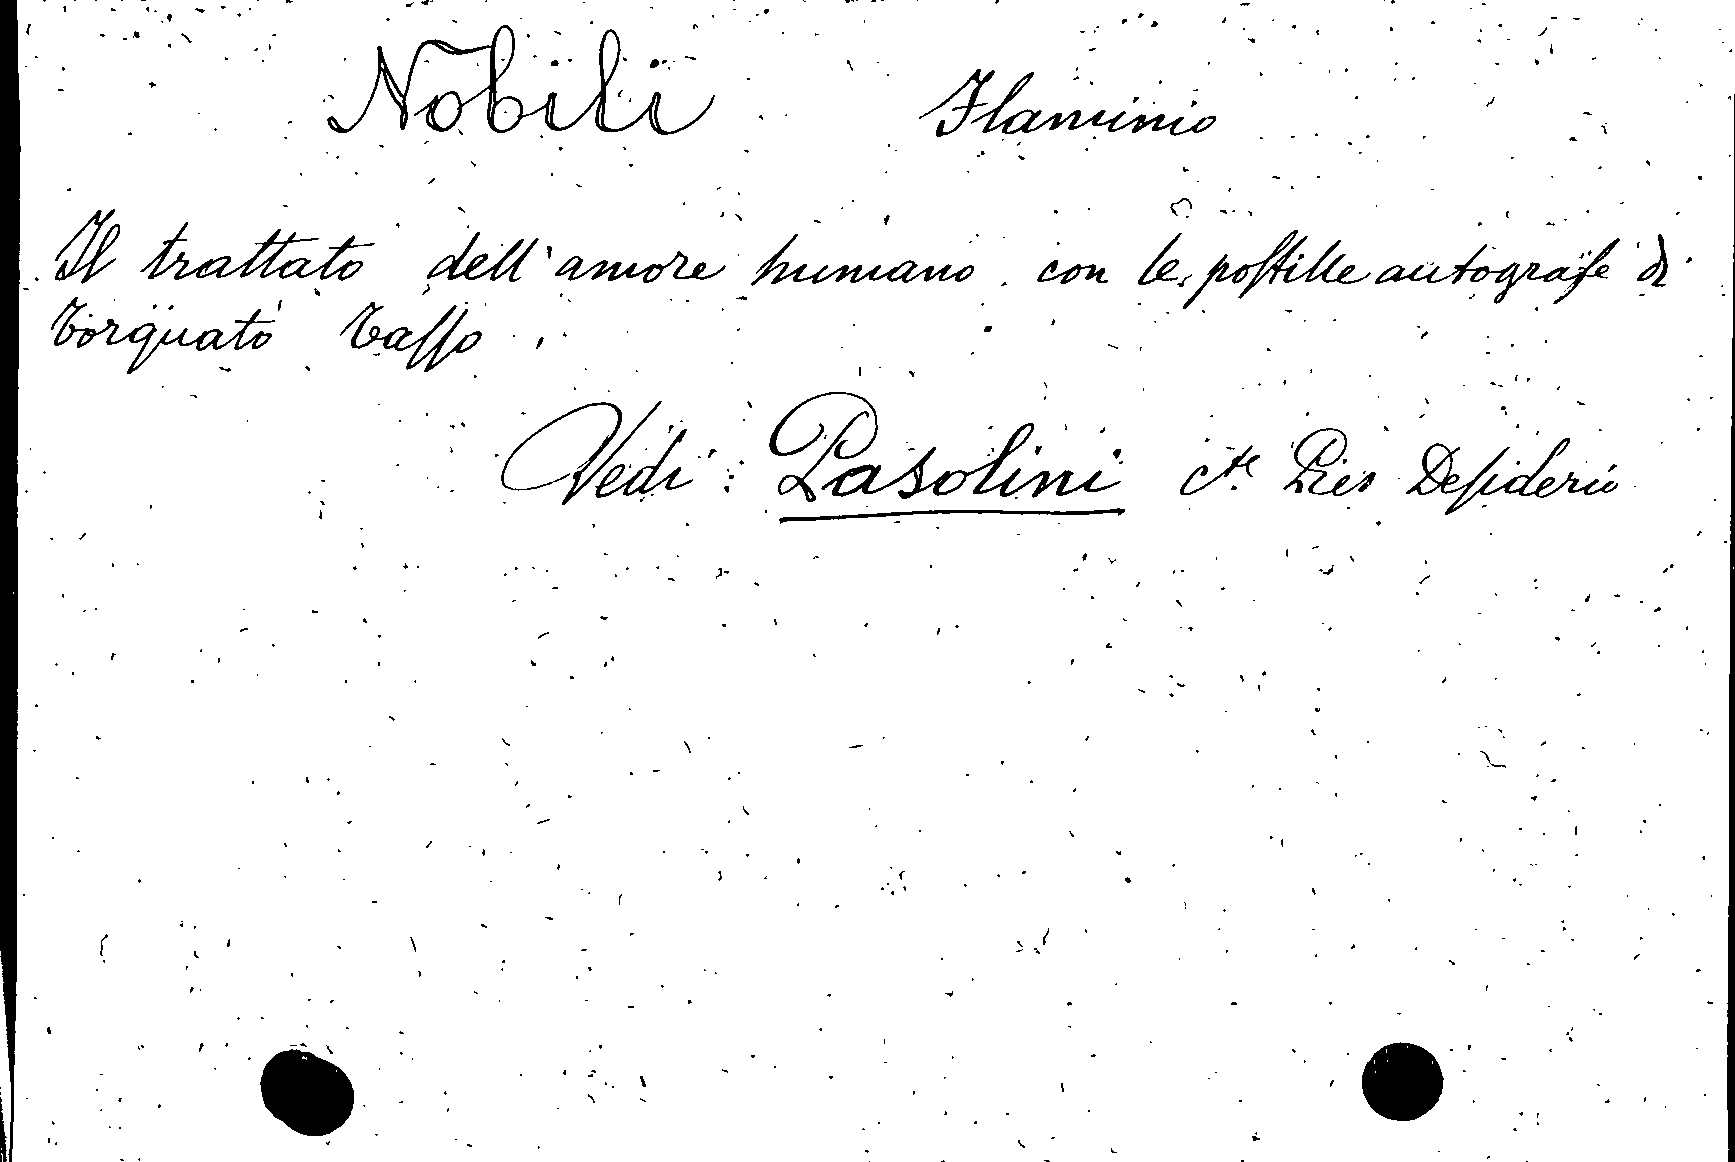 Nobili Flaminio
Il trattato dell'amore humano con le postille autografe di
Torquato Tasso.
Vedi: Pasolini cte Pier Desiderio